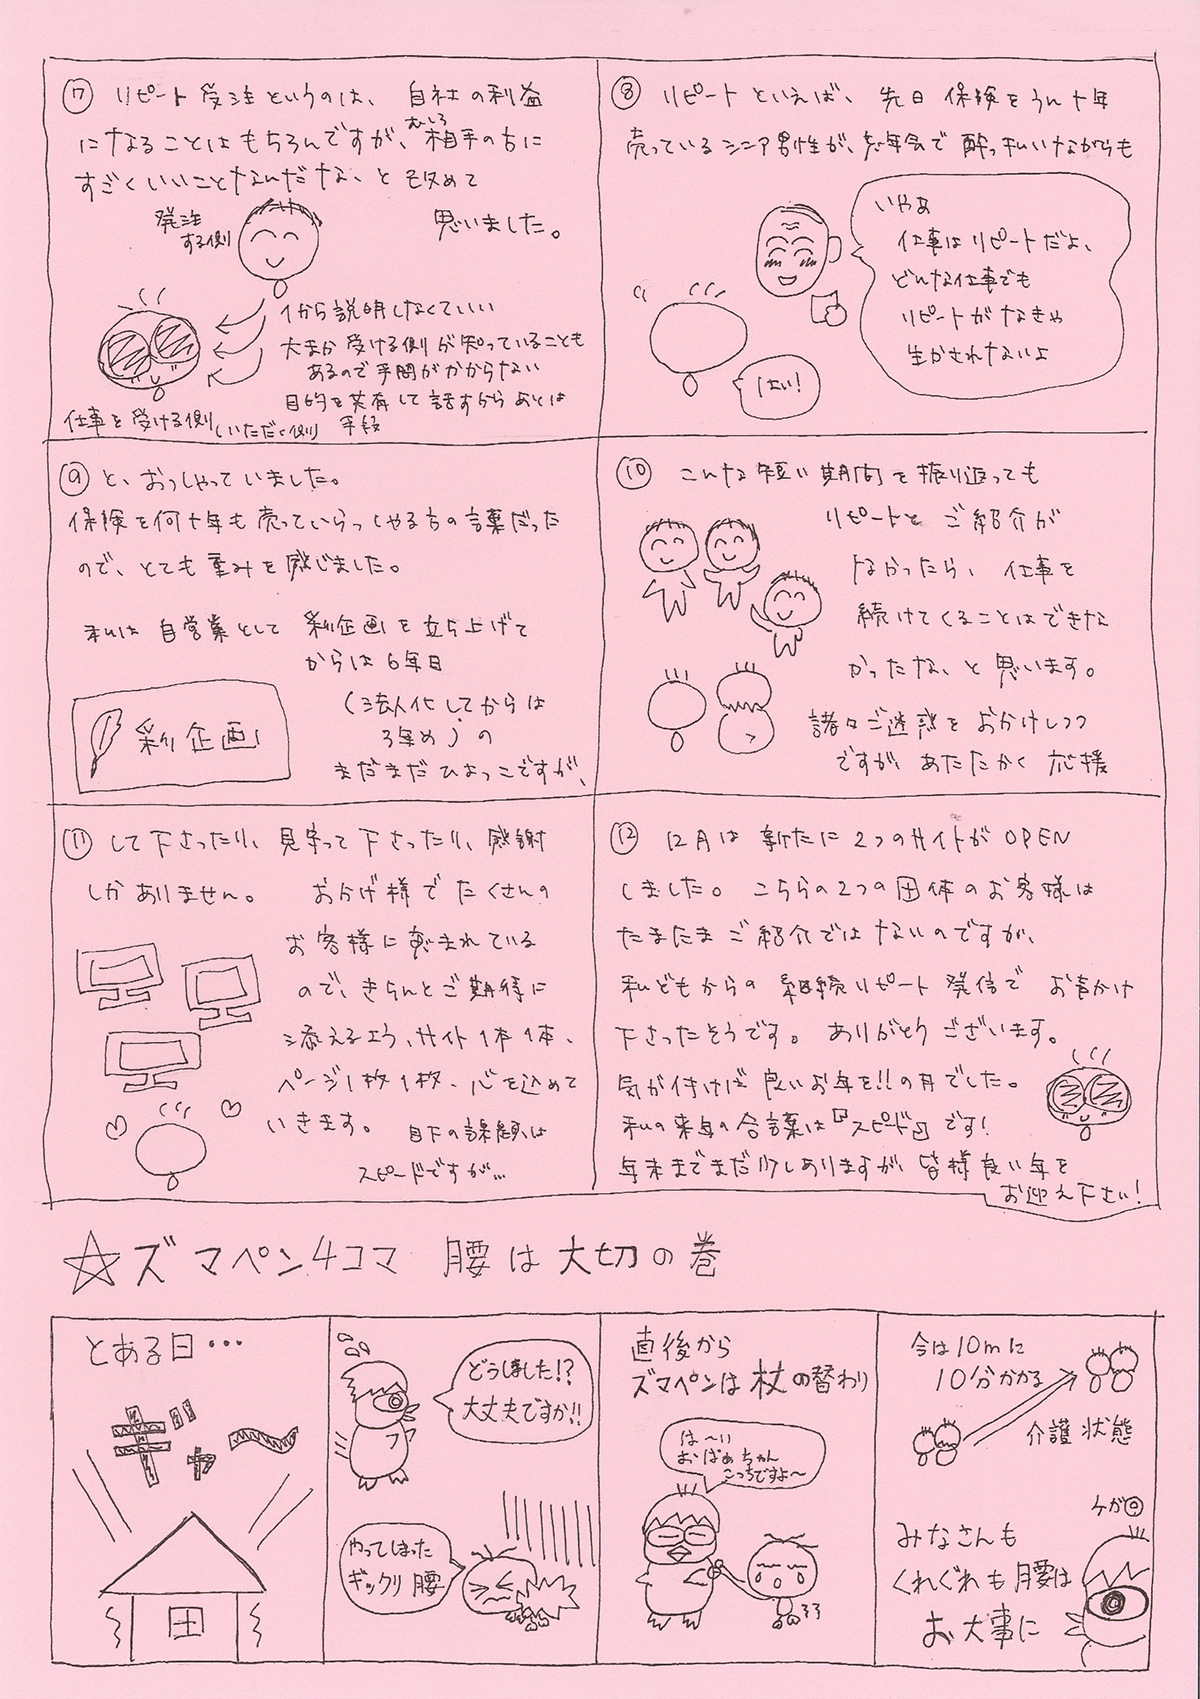 ⑦ リピート受注というのは、自社の利益
になることはもちろんですが、むしろ相手の方に
すごくいいことなんだな、と改めて
思いました。
発注
する側
1から説明しなくていい
大まか受ける側が知っていることも
あるので手間がかからない
目的を共有して話すからあとは
手段
仕事を受ける側(いただく側)
⑧ リピートといえば、先日保険をうん十年
売っているシニア男性が、忘年会で酔っ払いながらも
いやぁ
仕事はリピートだよ、
どんな仕事でも
リピートがなきゃ
生かされないよ
はい!
⑨ と、おっしゃっていました。
保険を何十年も売っていらっしゃる方の言葉だった
ので、とても重みを感じました。
私は自営業として彩企画を立ち上げて
からは6年目
(法人化してからは
3年め)の
まだまだひよっこですが、
彩企画
⑩ こんな短い期間を振り返っても
リピートとご紹介が
なかったら、仕事を
続けてくることはできな
かったな、と思います。
諸々ご迷惑をおかけしつつ
ですが、あたたかく応援
⑪ して下さったり、見守って下さったり、感謝
しかありません。おかげ様でたくさんの
お客様に恵まれている
ので、きちんとご期待に
添えるよう、サイト1本1本、
ページ1枚1枚、心を込めて
いきます。目下の課題は
スピードですが…
⑫ 12月は新たに2つのサイトがOPEN
しました。こちらの2つの団体のお客様は
たまたまご紹介ではないのですが、
私どもからの継続リピート発信でお声かけ
下さったそうです。ありがとうございます。
気が付けば良いお年を!!の月でした。
私の来年の合言葉は『スピード』です!
年末までまだ少しありますが、皆様良い年を
お迎え下さい!
☆ズマペン4コマ 腰は大切の巻
とある日…
ギャ〜
どうしました!?
大丈夫ですか!!
やってしまった
ギックリ腰
直後から
ズマペンは杖の替わり
は〜い
おばあちゃん
こっちですよ〜
今は10mに
10分かかる
介護状態
ケガ◎
みなさんも
くれぐれも腰は
お大事に